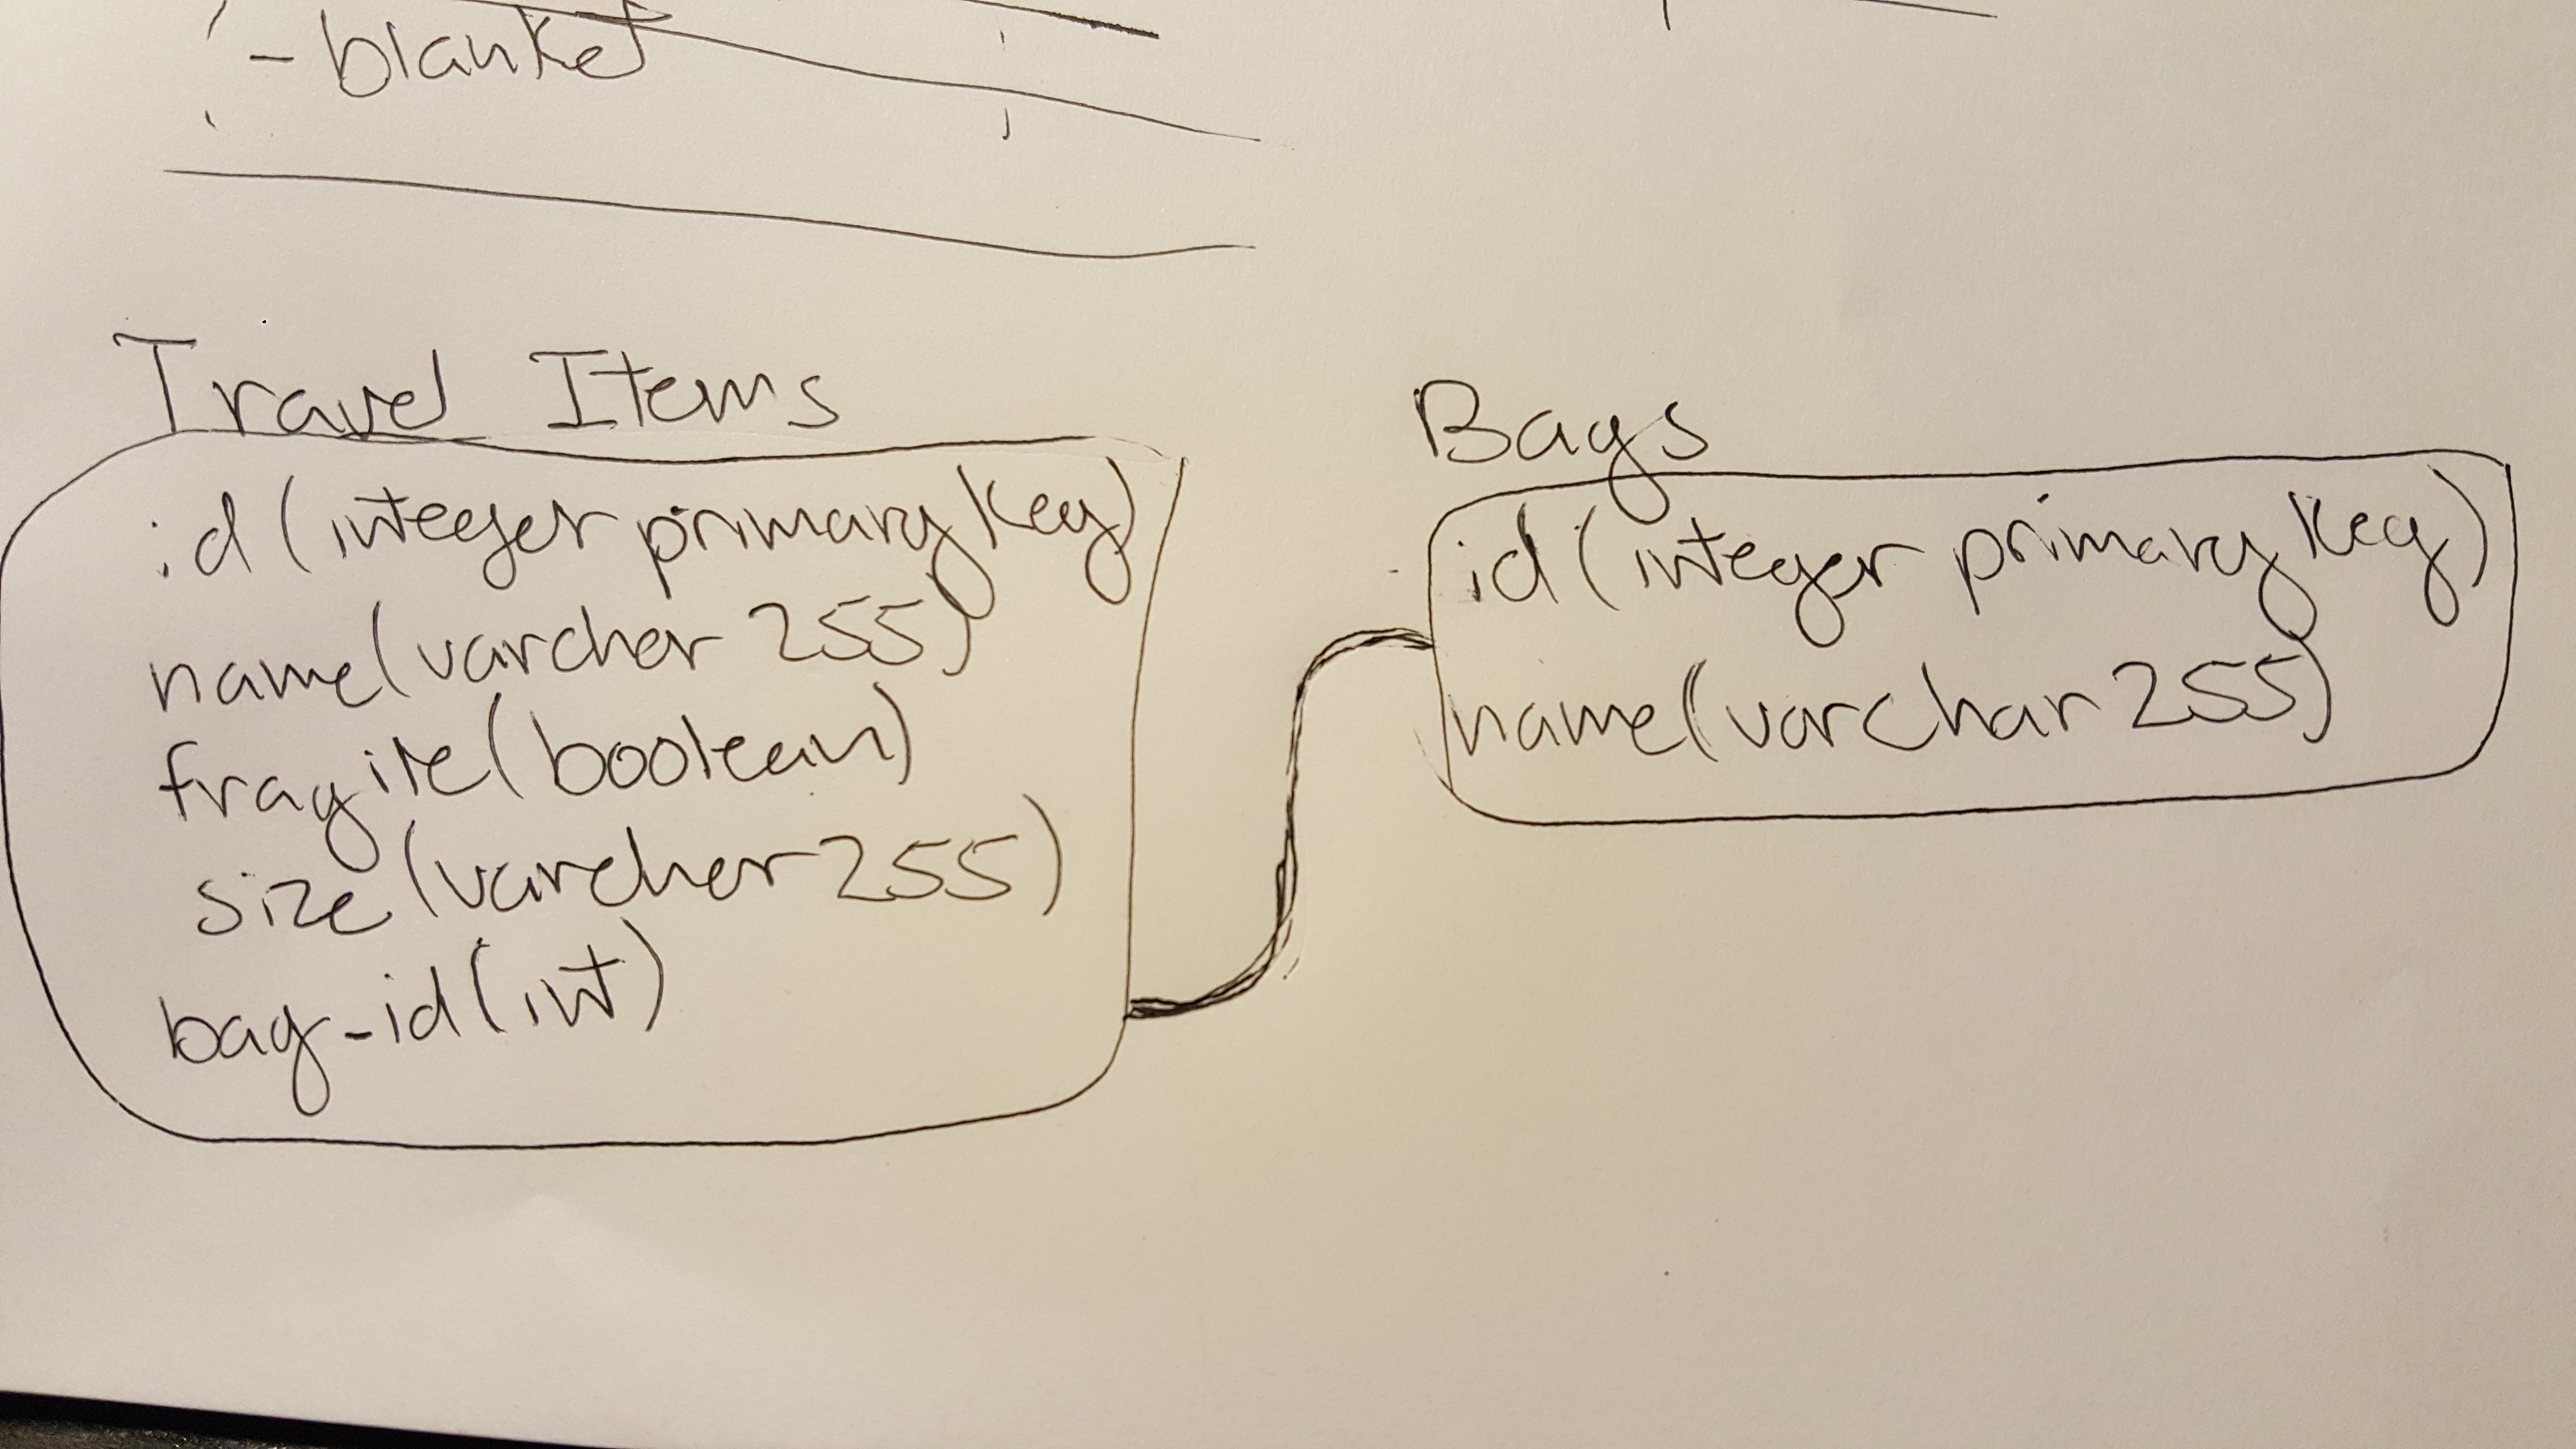 - blanket
Travel Items
id (integer primary key)
name (varchar 255)
fragile (boolean)
size (varchar 255)
bag-id (int)
Bags
id (integer primary key)
name (varchar 255)